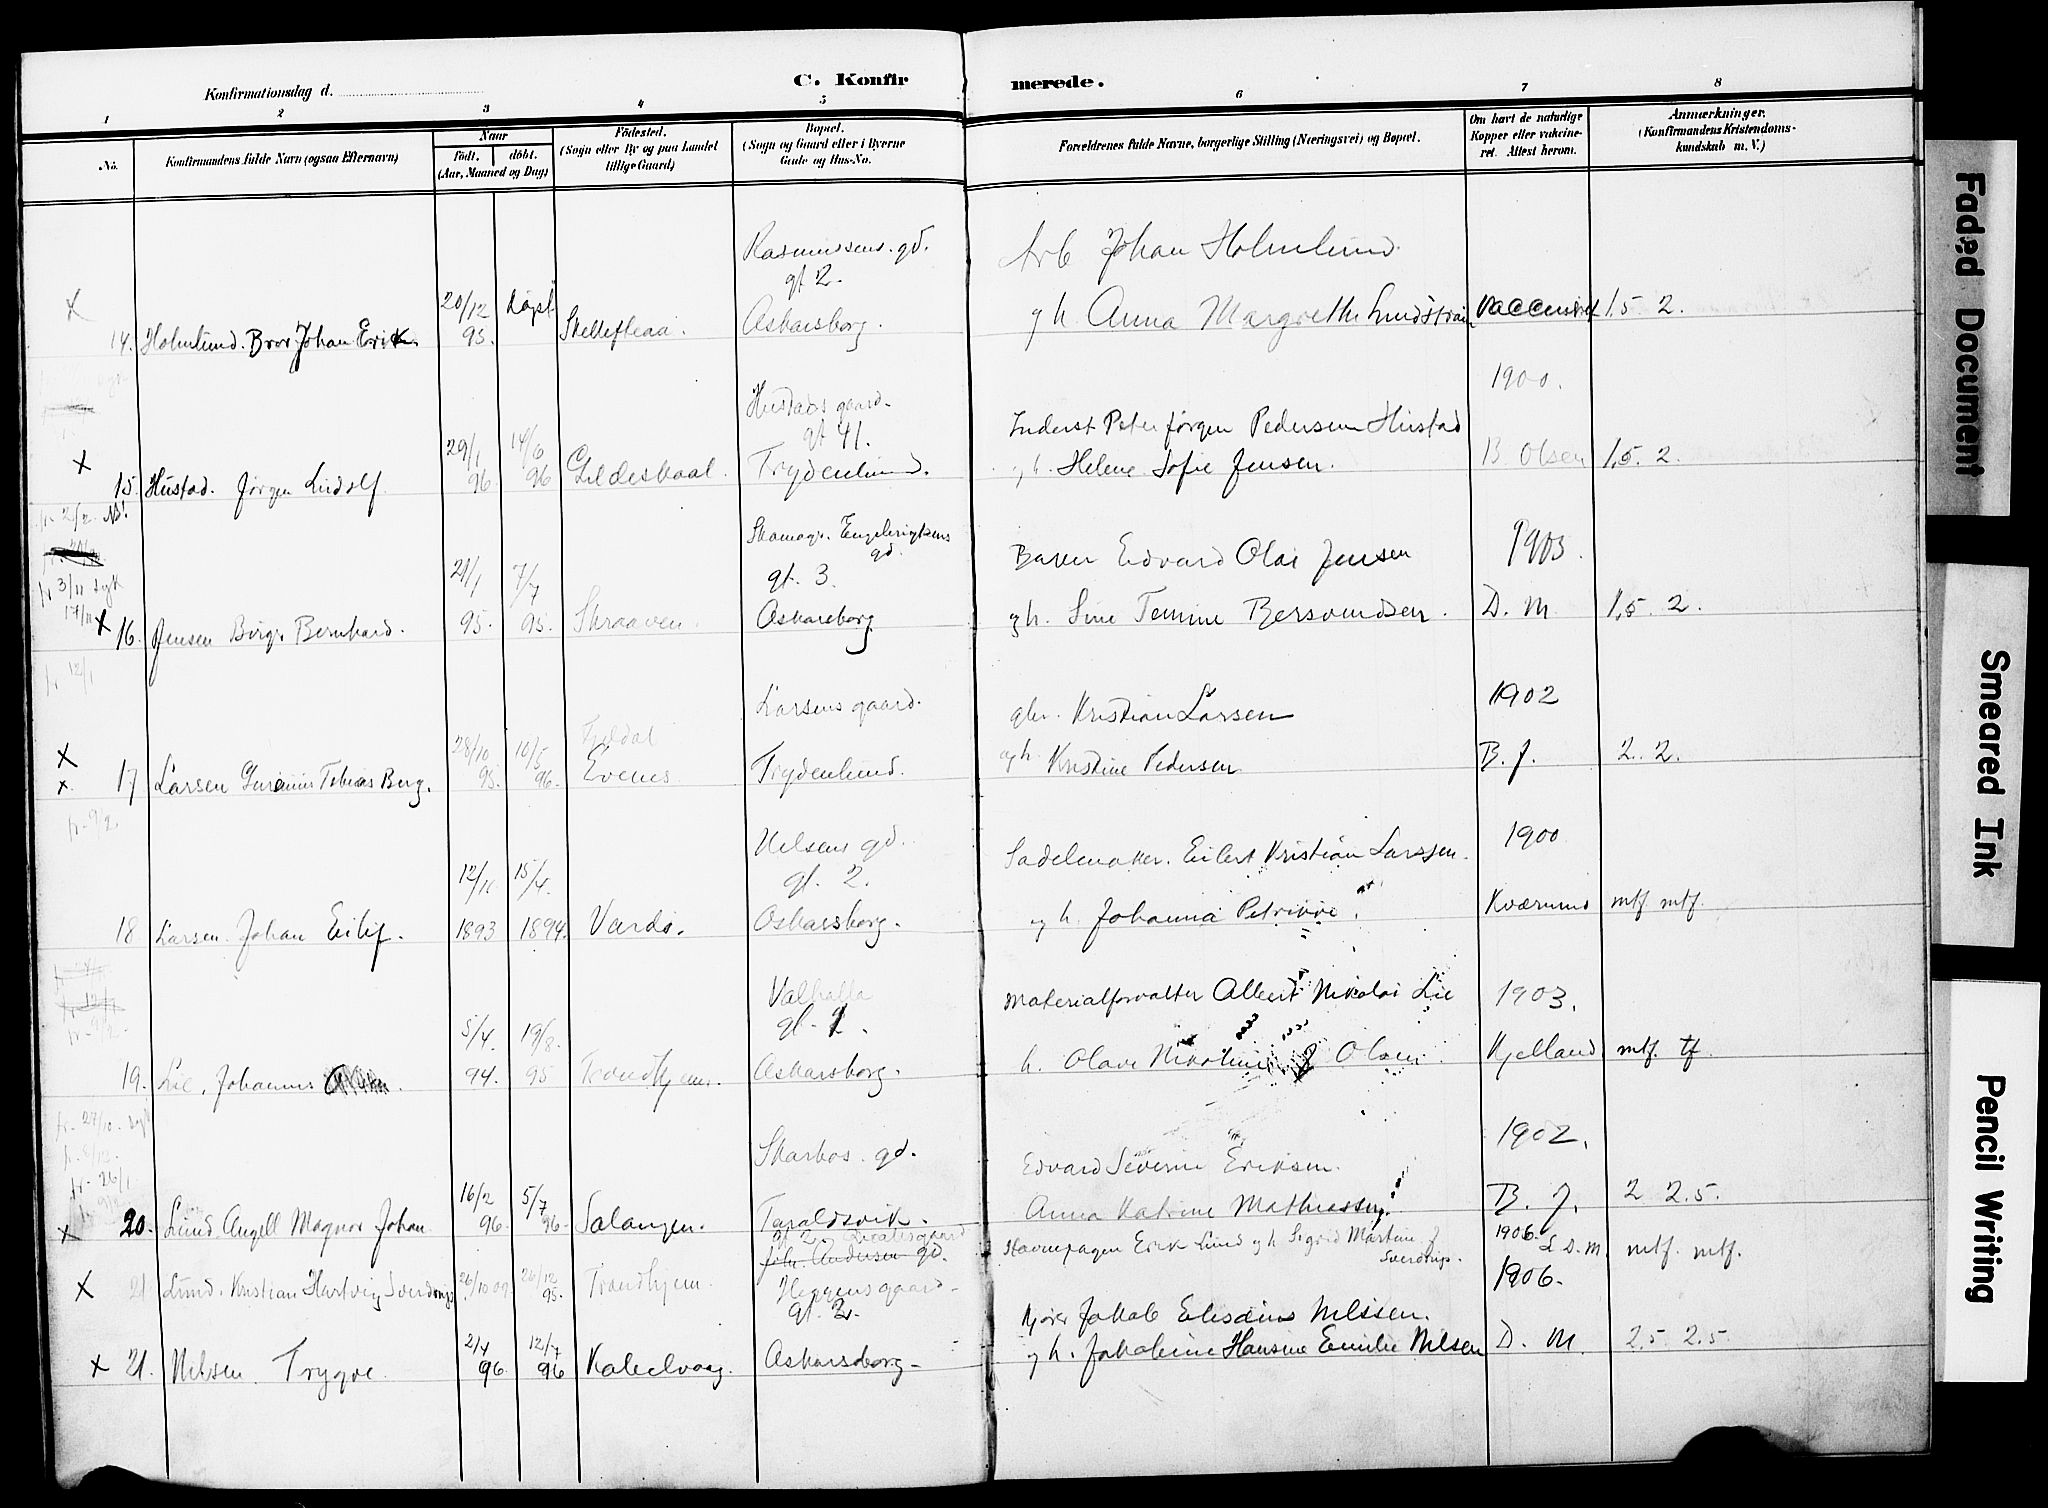 C. Konfirmerede.
Konfirmationsdag d.
1 2 3 4 5 6 7 8
No. Konfirmandens fulde Navn (ogsaa Efternavn) Naar Födt. döbt. (Aar, Maaned og Dag) Födested. (Sogn eller By og paa Landet tillige Gaard) Bopæl. (Sogn og Gaard eller i Byerne Gade og Hus-No. Forældrenes fulde Navne, borgerlige Stilling (Næringsvei) og Bopæl. Om havt de naturlige Kopper eller vakcineret. Attest herom. Anmærkninger. (Konfirmandens Kristendomskundskab m. V.)
Rasmussens gd. Arb Johan Holmlund
gt 2.
x 20/12 döpt Askarsborg. g h. Anna Margrethe Lundström vaccinert 1,5 2.
14. Holmlund. Bror Johan Erik. 95. Skellefteaa.
Hustads gaard. 1900.
gt 41. Inderst Peter Jørgen Pedersen Hustad
x 29/1 14/6 Trydenlund. g h. Helene Sofie Jensen. B Olsen 1,5. 2.
15. Hustad. Jørgen Ludolf 96 96 Gildeskaal.
fr. 2/2 NB!
Skomagr. Engebrigtsens gd. Baker Edvard Olai Jensen 1903.
fr 3/11 syk 21/1 7/7 gt. 3.
17/11 x 16. Jensen Birgr Bernhard. 95. 95. Skraaven. Askarsborg g h. Sine Temine Bersvendsen. D. M. 1,5. 2.
fr 12/1
Larsens gaard. gbr. Kristian Larsen 1902
x 28/10 10/5 Fjeldal
x. 17 Larsen Tobias Berg. 95. 96. Evenes Trydenlund. og h. Kristine Pedersen B. J. 2. 2.
fr. 9/2
Nilsens gd. Sadelmaker. Eilert Kristian Larssen. 1900
12/11 15/4 gt. 2.
18 Larsen. Johan Eilif. 1893 1894. Vardö. Askarsborg. g h. Johanna Petrikke. Kværnmo mtf mtf.
fr 9/2
Valhalla Materialforvalter Albert Nikolai Lie 1903.
5/4. 19/8. gt. 2.
19. Lie, Johannes 94. 95 Trondhjem. Askarsborg. h. Olave Nikoline Olsen. Kjelland mtf. tf.
fr. 27/10. syk
Skarbos. gd. Edvard Severin Eriksen. 1902.
fr. 26/1
x 20. Lund Angell Magnor Johan 16/2 96 5/7 96 Salangen. Taraldsvik. Anna Katrine Mathiassen. B. J. 2 2.5.
gt 2. Havnepagen Erik Lund g h Sigrid Martine f Sverdrup. 1906. L D. M mtf. mtf.
Joh. Andersen gd.
x 21. Lund. Kristian Hartvig Sverdrup 26/10 26/12 95. Trondhjem. Heggens gaard
gt. 2. Kjører Jakob Elisæus Nilssen. 1906.
x 21. Nilsen. Trygve 2/4 96. 12/7 96 Kabelvaag. Askarsborg g h. Jakobine Hansine Emilie Nilsen D. M. 2.5 2.5
Faded Document
Smeared Ink
Pencil Writing